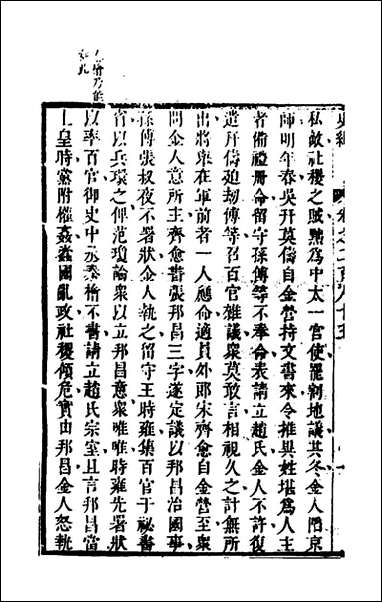 史緯 卷之二百八十五
私敵社稷之賊黜為中太一官使罷割地議其冬金人陷京
師明年春吳幵莫儔自金營持文書來令推異姓堪為人主
者備禮冊命留守孫傅等不奉命表請立趙氏金人不許復
遣幵儔迫劫傅等召百官雜議衆莫敢言相視久之計無所
出將舉在軍前者一人應命適員外郎宋齊愈自金營至衆
問金人意所主齊愈書張邦昌三字遂定議以邦昌治國事
孫傅張叔夜不署狀金人執之留守王時雍集百官于祕書
省以兵環之俾范瓊諭衆以立邦昌意衆唯唯時雍先署狀
以率百官御史中丞秦檜不書請立趙氏宗室且言邦昌當
上皇時黨附權姦蠹國亂政社稷傾危實由邦昌金人怒執